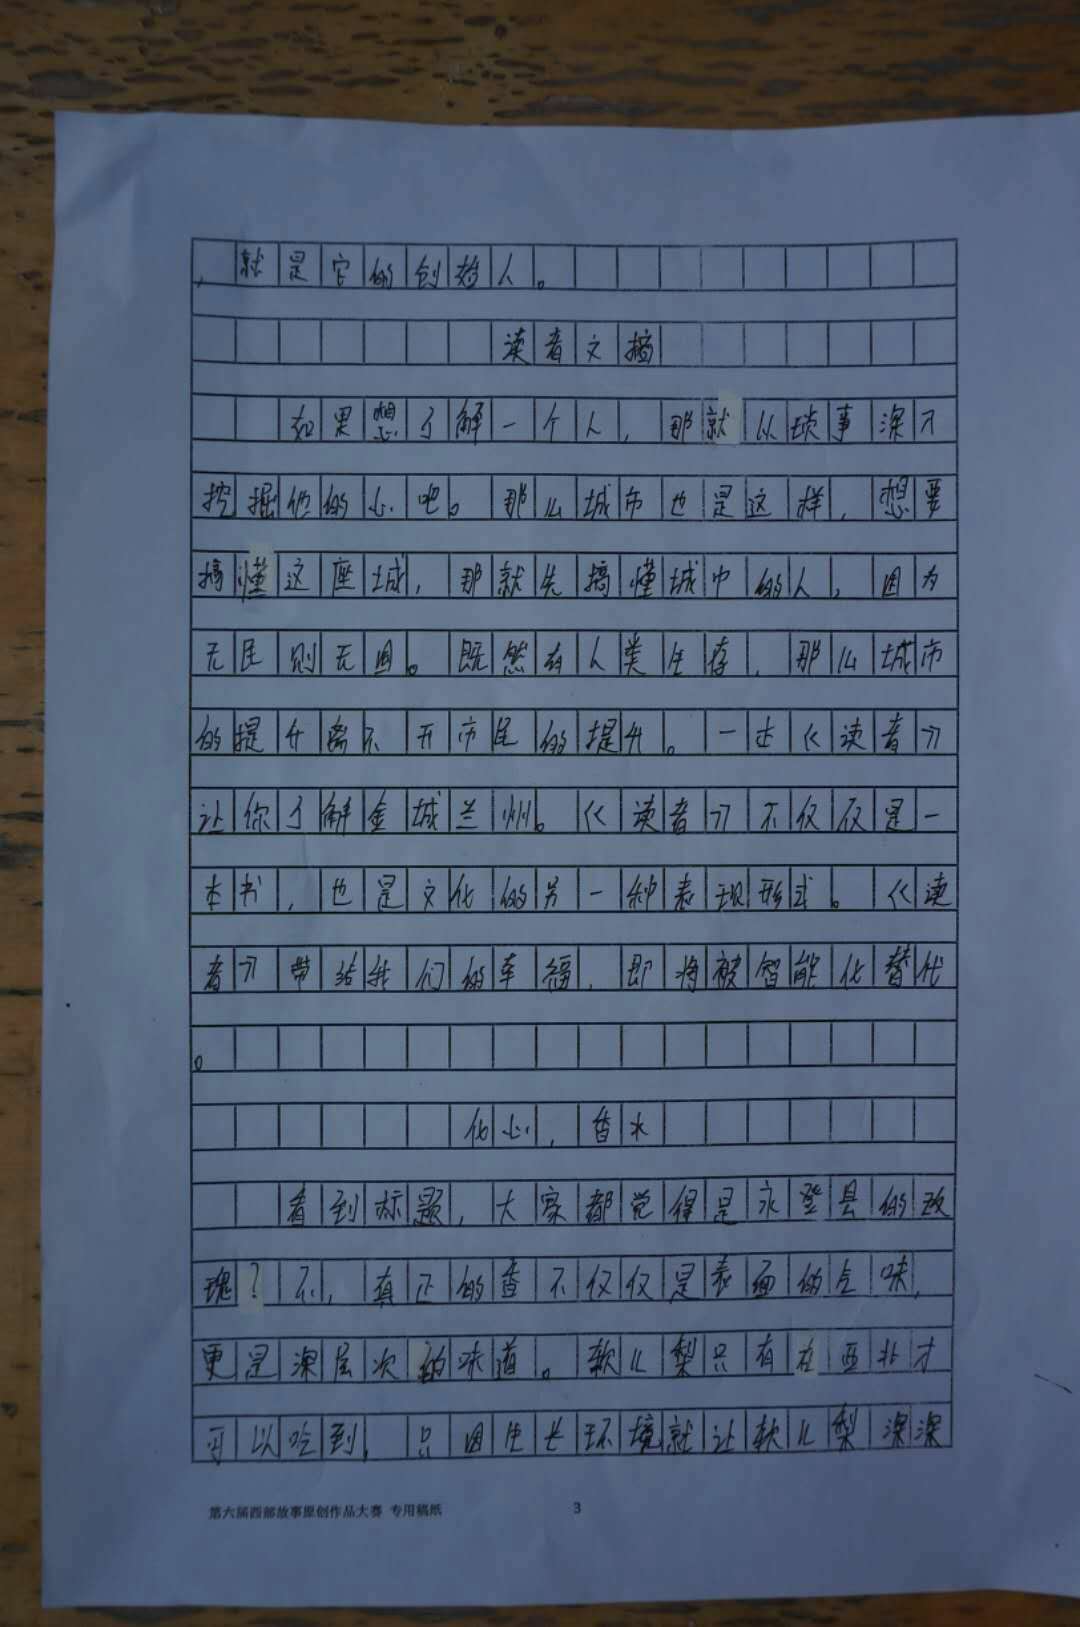 ，就是它的创始人。
读者文摘
如果想了解一个人，那就从琐事深入
挖掘他的心吧。那么城市也是这样，想要
搞懂这座城，那就先搞懂城中的人，因为
无民则无国。既然有人类生存，那么城市
的提升离不开市民的提升。一本《读者》
让你了解金城兰州。《读者》不仅仅是一
本书，也是文化的另一种表现形式。《读
者》带给我们的幸福，即将被智能化替代
。
化心，香水
看到标题，大家都觉得是永登县的玫
瑰？不，真正的香不仅仅是表面的气味，
更是深层次的味道。软儿梨只有在西北才
可以吃到，只因生长环境就让软儿梨深深
第六届西部故事原创作品大赛 专用稿纸 3